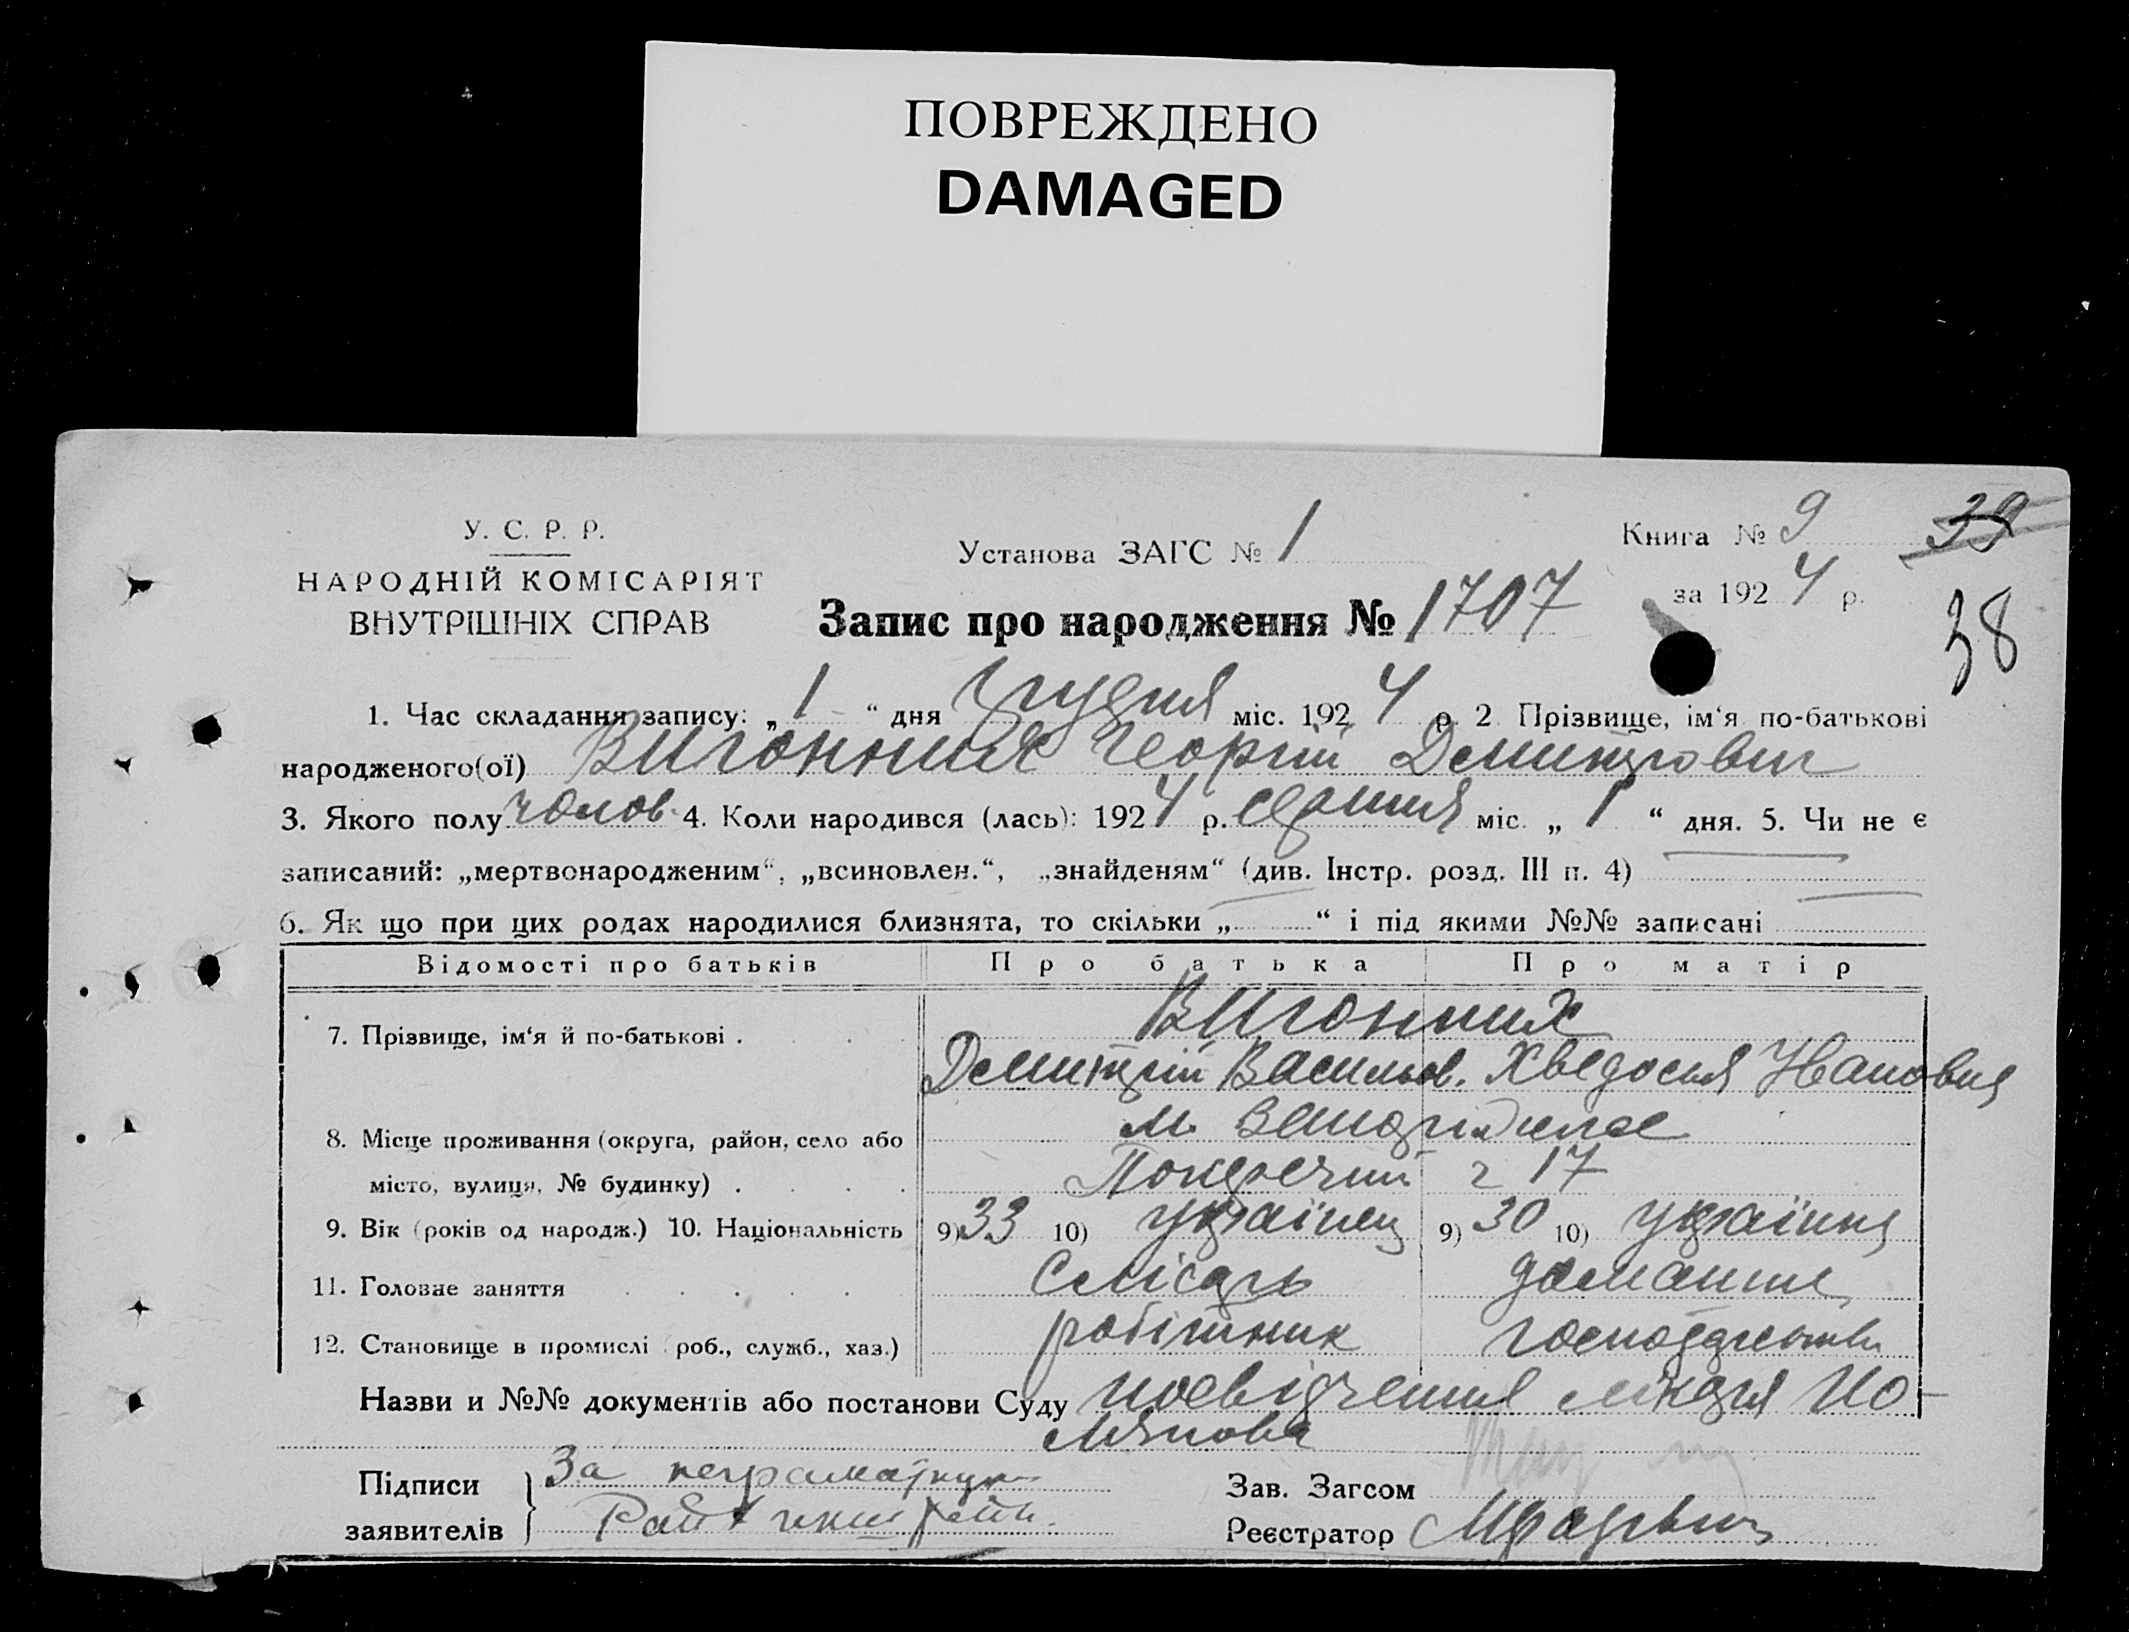 ПОВРЕЖДЕНО
DAMAGED
У. С. Р. Р.
НАРОДНІЙ КОМІСАРІЯТ
ВНУТРІШНІХ СПРАВ
Установа ЗАГС № 1
Запис про народження № 1707
Книга № 9
за 1924 р.
39
38
1. Час складання запису: „1“ дня Грудня міс. 1924 р. 2 Прізвище, ім‘я по-батькові
народженого(ої) Вигонних Георгій Демитрович
3. Якого полу чолов. 4. Коли народився (лась): 1924 р. міс. „1“ дня. 5. Чи не є
записаний: „мертвонародженим“, „всиновлен.“, „знайденям“ (див. Інстр. розд. III п. 4)
6. Як що при цих родах народилися близнята, то скільки „ “ і під якими №№ записані
Відомості про батьків Про батька Про матір
Вигонних
7. Прізвище, ім‘я й по-батькові .
Демитрій Васильов. Хведосья Ивановна
8. Місце проживання (округа, район, село або м.
місто, вулиця, № будинку) . 17
9. Вік (років од народж.) 10. Національність 9) 33 10) українец 9) 30 10) українка
11. Головне заняття Слісарь домашнє
12. Становище в промислі (роб., служб., хаз.) робітник господарство
Назви и №№ документів або постанови Суду посвідчення лікаря
Підписи За неграматную
заявителів
Зав. Загсом
Реєстратор